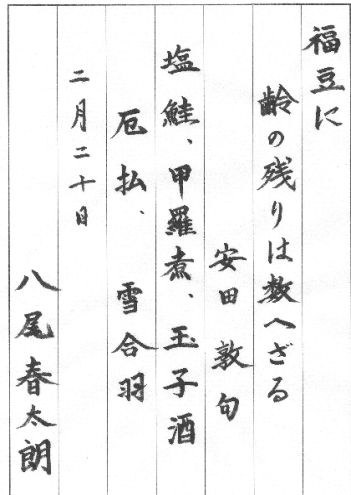 福豆に
齢の残りは数へざる
安田敦句
塩鮭、甲羅煮、玉子酒
厄払、雪合羽
二月二十日
八尾春太朗